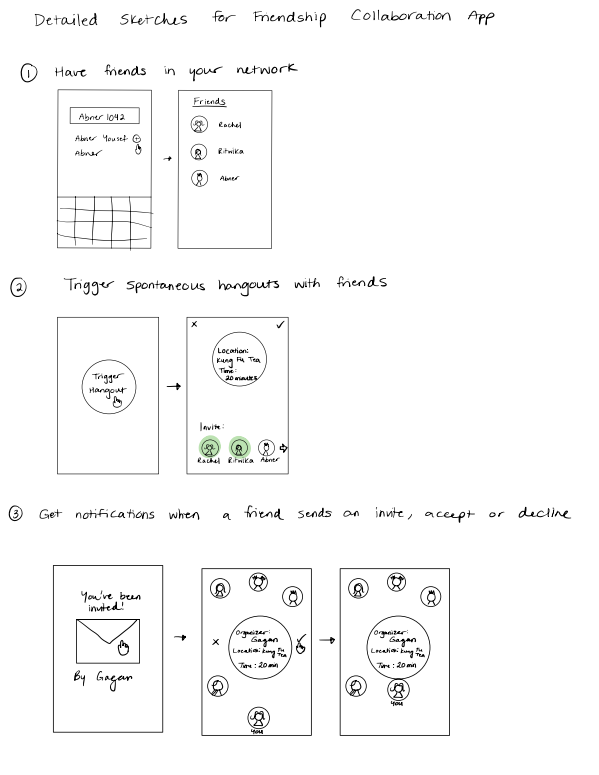 Detailed Sketches for Friendship Collaboration App
① Have friends in your network
Abner 1042
Abner Yousef
Abner
Friends
Rachel
Ritwika
Abner
② Trigger spontaneous hangouts with friends
Trigger
Hangout
Location:
Kung Fu Tea
Time:
20 minutes
Invite:
Rachel Ritwika Abner
③ Get notifications when a friend sends an invite, accept or decline
You've been
invited!
By Gagan
Organizer:
Gagan
Location: Kung Fu
Tea
Time: 20 min
You
Organizer:
Gagan
Location: Kung Fu
Tea
Time: 20 min
You